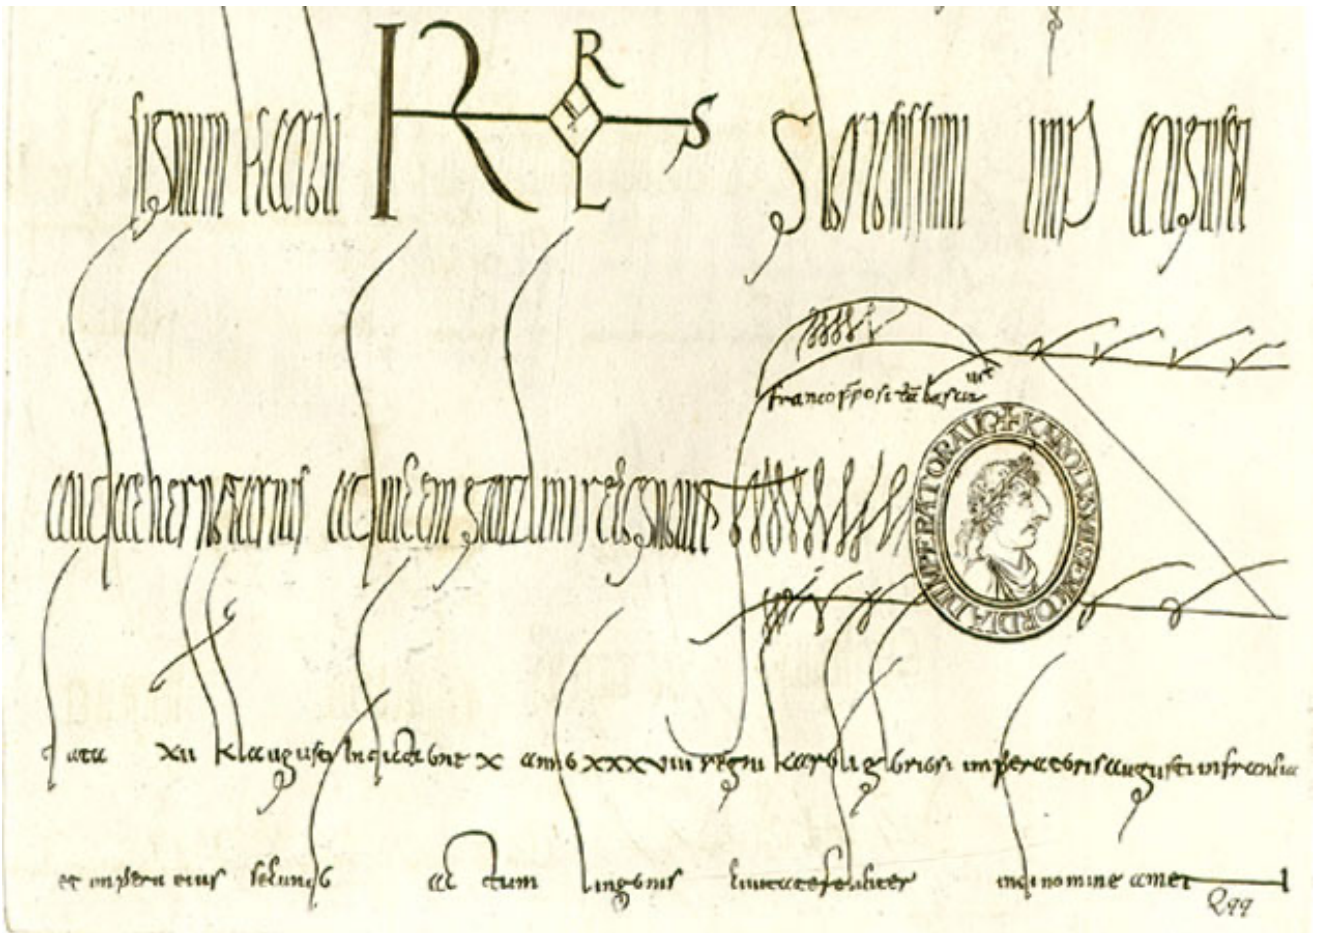 signum karoli R R L S imp augusti
franco
audacher notarius ad uicem gauzlini recognouit
+ KAROLVS MISERICORDIA DI IMPERATOR AVG
data xii kl augusti Indictione x anno xxxviii regni karoli gloriosi imperatoris augusti in francia
et imperii eius secundo actum lingonis ciuitate feliciter in di nomine amen
Qqq